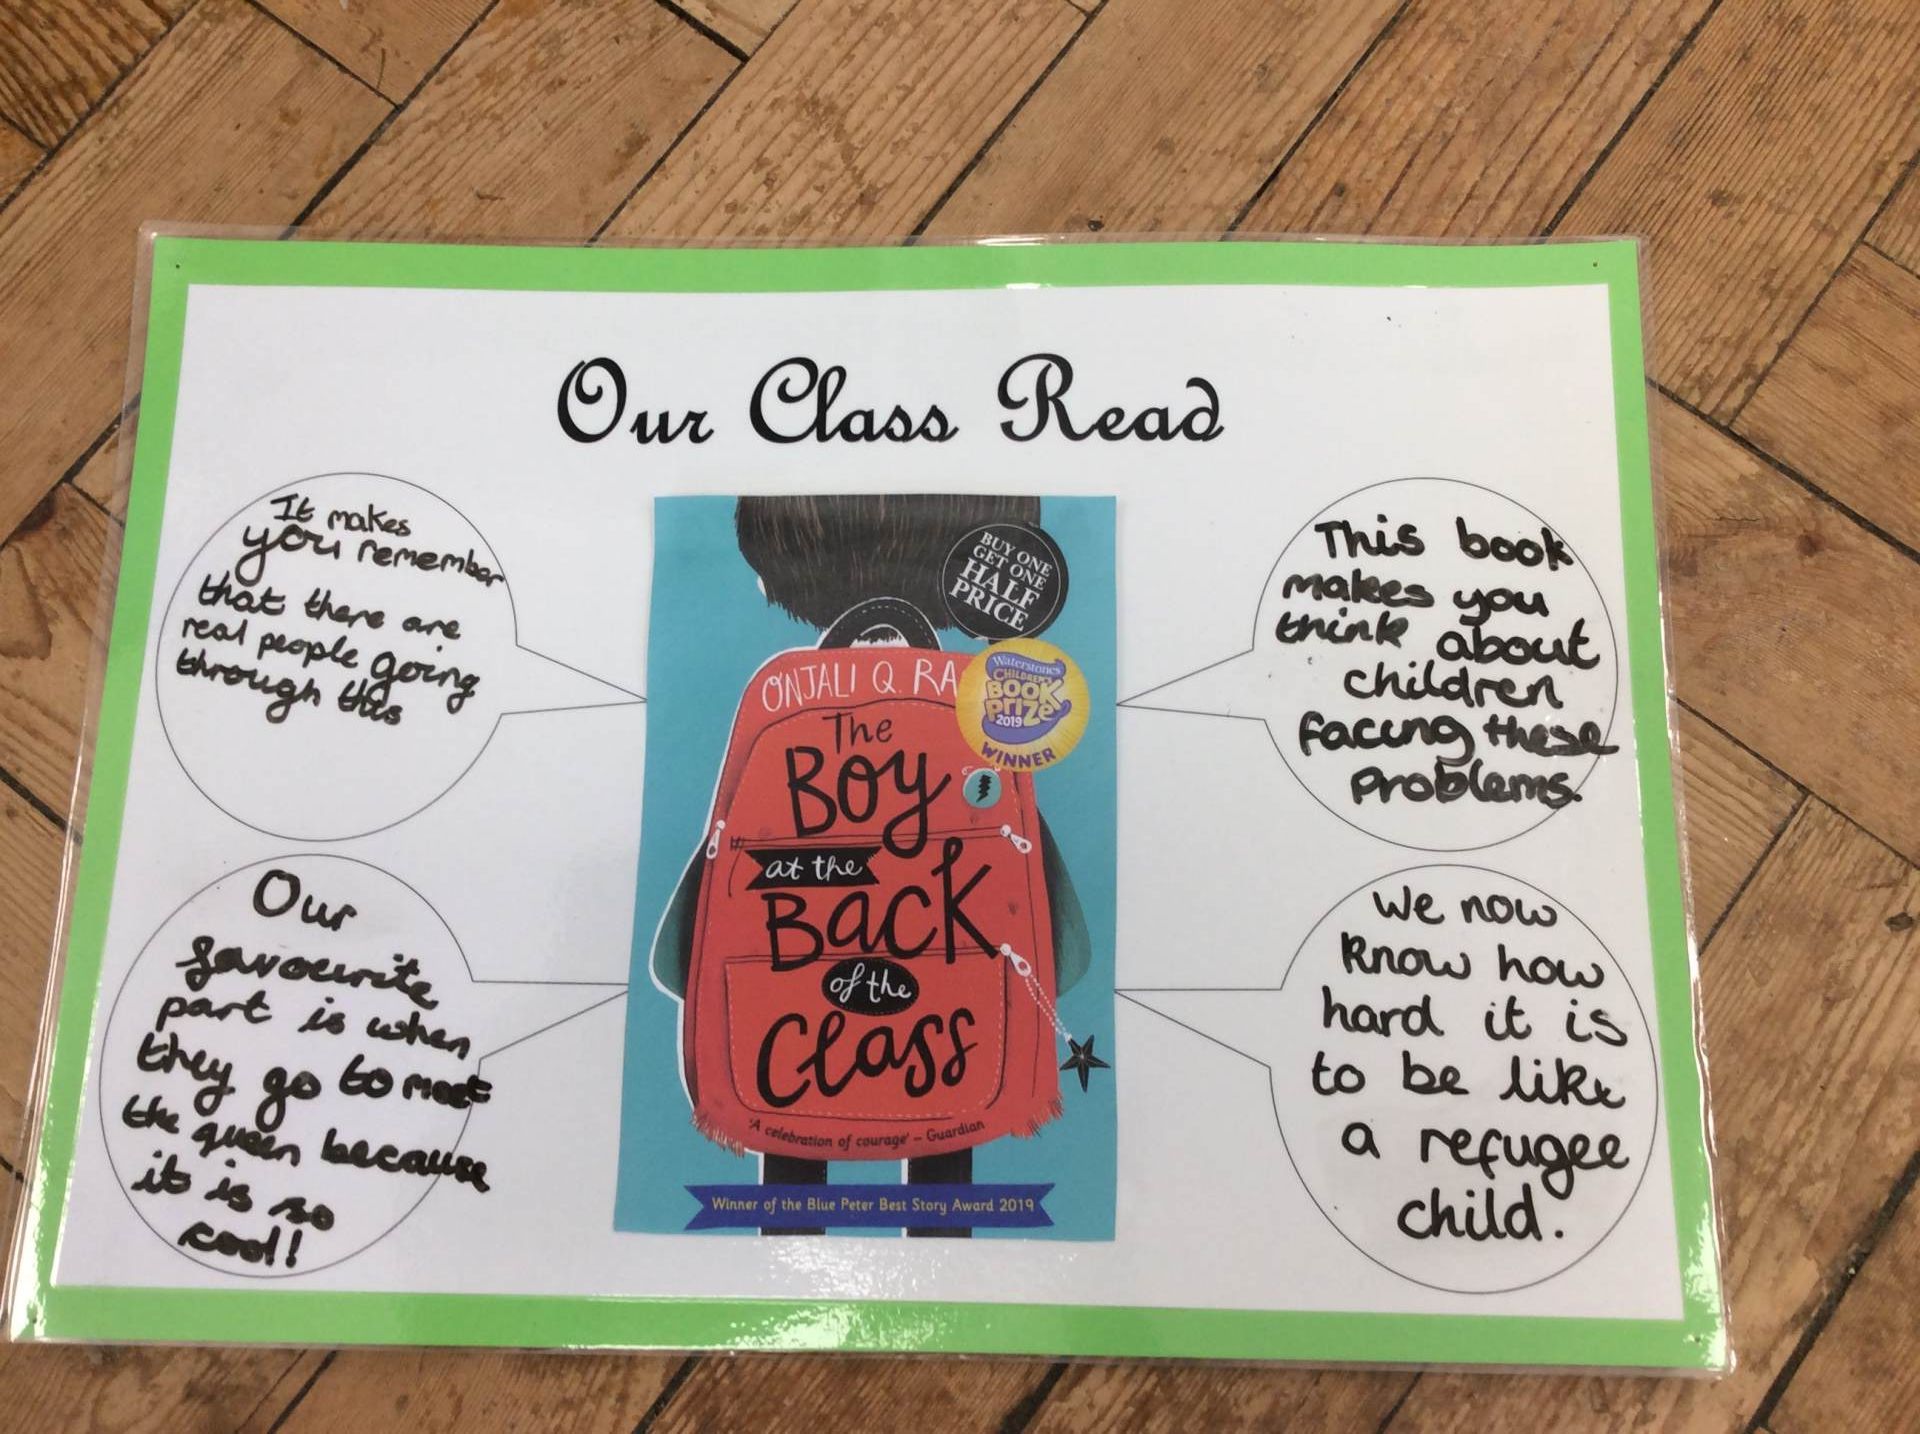 Our Class Read
It makes
you remember
that there are
real people going
through this
Our
favourite
part is when
they go to meet
the queen because
it is so
cool!
BUY ONE
GET ONE
HALF
PRICE
Waterstones
CHILDREN'S
BOOK
PRIZE
2019
WINNER
ONJALI Q. RA
The
Boy
at the
Back
of the
Class
'A celebration of courage' – Guardian
Winner of the Blue Peter Best Story Award 2019
This book
makes you
think about
children
facing these
problems.
We now
know how
hard it is
to be like
a refugee
child.